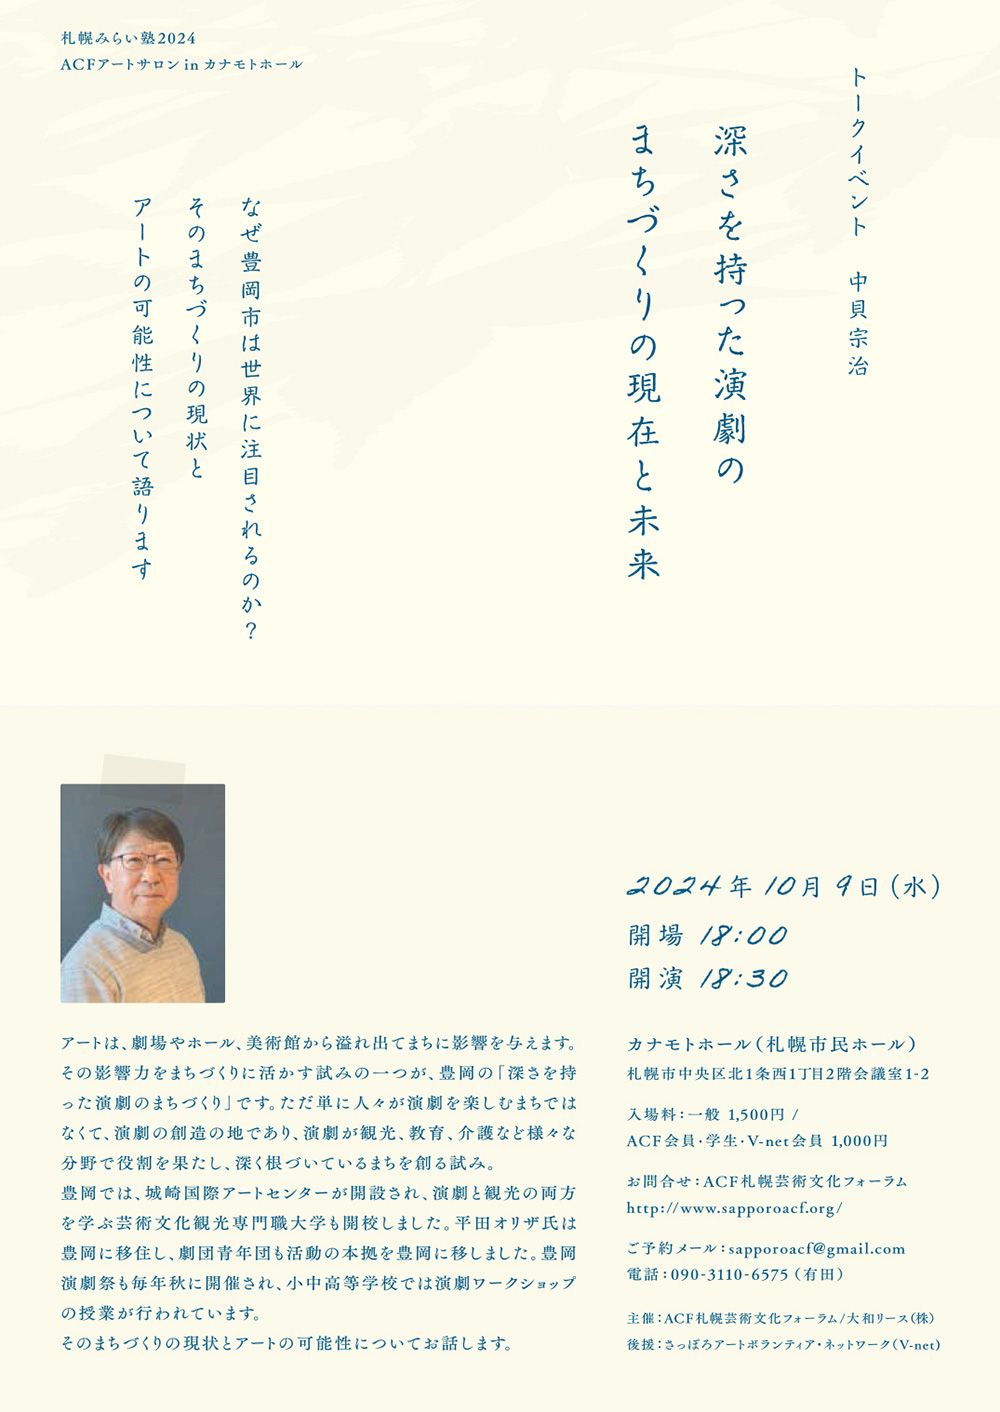 札幌みらい塾2024
ACFアートサロン in カナモトホール
トークイベント　中貝宗治
深さを持った演劇の
まちづくりの現在と未来
なぜ豊岡市は世界に注目されるのか？
そのまちづくりの現状と
アートの可能性について語ります
アートは、劇場やホール、美術館から溢れ出てまちに影響を与えます。
その影響力をまちづくりに活かす試みの一つが、豊岡の「深さを持
った演劇のまちづくり」です。ただ単に人々が演劇を楽しむまちでは
なくて、演劇の創造の地であり、演劇が観光、教育、介護など様々な
分野で役割を果たし、深く根づいているまちを創る試み。
豊岡では、城崎国際アートセンターが開設され、演劇と観光の両方
を学ぶ芸術文化観光専門職大学も開校しました。平田オリザ氏は
豊岡に移住し、劇団青年団も活動の本拠を豊岡に移しました。豊岡
演劇祭も毎年秋に開催され、小中高等学校では演劇ワークショップ
の授業が行われています。
そのまちづくりの現状とアートの可能性についてお話します。
2024年 10月 9日（水）
開場 18:00
開演 18:30
カナモトホール（札幌市民ホール）
札幌市中央区北1条西1丁目2階会議室1-2
入場料：一般 1,500円 /
ACF会員・学生・V-net会員 1,000円
お問合せ：ACF札幌芸術文化フォーラム
http://www.sapporoacf.org/
ご予約メール：sapporoacf@gmail.com
電話：090-3110-6575（有田）
主催：ACF札幌芸術文化フォーラム/大和リース（株）
後援：さっぽろアートボランティア・ネットワーク（V-net）